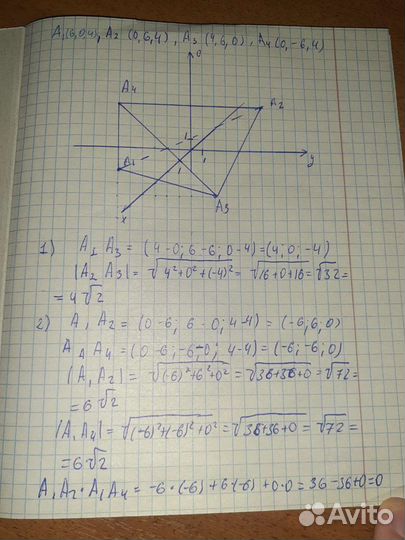 A₁(6,0,4), A₂ (0,6,4), A₃ (4,6,0), A₄ (0,-6,4)
A₄
A₂
A₁
1
1
1
y
x
A₃
1) A₂ A₃ = (4-0; 6-6; 0-4)=(4; 0; -4)
|A₂ A₃| = √4²+0²+(-4)² = √16+0+16 = √32 =
= 4√2
2) A₁ A₂ = (0-6; 6-0; 4-4) = (-6; 6; 0)
A₁ A₄ = (0-6; -6-0; 4-4) = (-6; -6; 0)
|A₁ A₂| = √(-6)²+6²+0² = √36+36+0 = √72 =
= 6√2
|A₁ A₄| = √(-6)²+(-6)²+0² = √36+36+0 = √72 =
= 6√2
A₁ A₂ · A₁ A₄ = -6·(-6)+6·(-6)+0·0 = 36-36+0=0
Avito